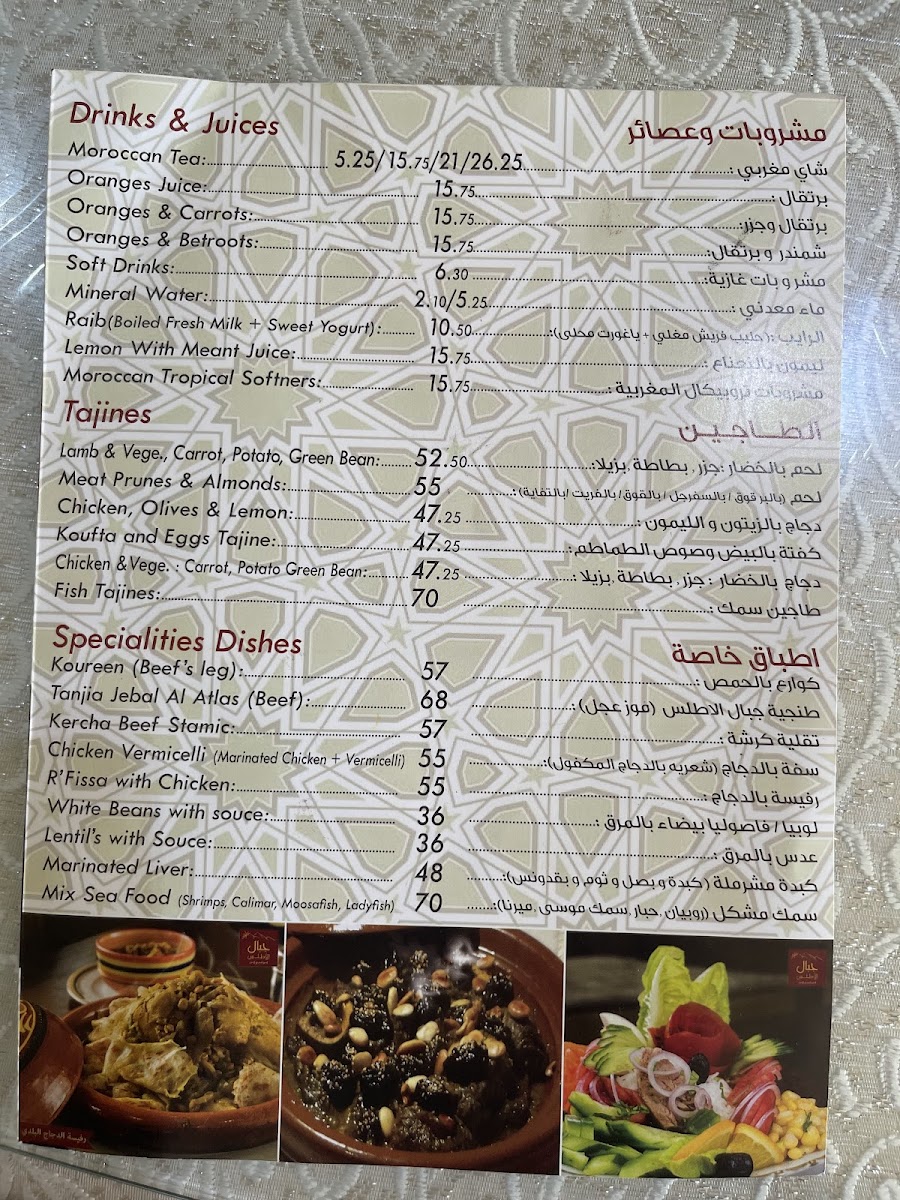 Drinks & Juices مشروبات وعصائر
Moroccan Tea: 5.25/15.75/21/26.25 شاي مغربي :
Oranges Juice: 15.75 برتقال :
Oranges & Carrots: 15.75 برتقال وجزر:
Oranges & Betroots: 15.75 شمندر و برتقال:
Soft Drinks: 6.30 مشروبات غازية:
Mineral Water: 2.10/5.25 ماء معدني :
Raib(Boiled Fresh Milk + Sweet Yogurt): 10.50 الرايب :( حليب فريش مغلي + ياغورت محلى):
Lemon With Meant Juice: 15.75 ليمون بالنعناع :
Moroccan Tropical Softners: 15.75 مشروبات تروبيكال المغربية :
Tajines الطـاجيـن
Lamb & Vege., Carrot, Potato, Green Bean: 52.50 لحم بالخضار :جزر, بطاطة ,بزيلا:
Meat Prunes & Almonds: 55 لحم (بالبرقوق / بالسفرجل / بالقوق/ بالفريت /بالتفاية) :
Chicken, Olives & Lemon: 47.25 دجاج بالزيتون و الليمون :
Koufta and Eggs Tajine: 47.25 كفتة بالبيض وصوص الطماطم:
Chicken &Vege. : Carrot, Potato Green Bean: 47.25 دجاج بالخضار : جزر , بطاطة ,بزيلا :
Fish Tajines: 70 طاجين سمك :
Specialities Dishes اطباق خاصة
Koureen (Beef's leg): 57 كوارع بالحمص :
Tanjia Jebal Al Atlas (Beef): 68 طنجية جبال الاطلس (موز عجل) :
Kercha Beef Stamic: 57 تقلية كرشة :
Chicken Vermicelli (Marinated Chicken + Vermicelli) 55 سفة بالدجاج (شعريه بالدجاج المكفول):
R'Fissa with Chicken: 55 رفيسة بالدجاج :
White Beans with souce: 36 لوبيا / فاصوليا بيضاء بالمرق :
Lentil's with Souce: 36 عدس بالمرق :
Marinated Liver: 48 كبدة مشرملة (كبدة و بصل و ثوم و بقدونس):
Mix Sea Food (Shrimps, Calimar, Moosafish, Ladyfish) 70 سمك مشكل (روبيان, حبار ,سمك موسى ,ميرنا):
جبال
الأطلس
جبال
الأطلس
رفيسة الدجاج البلدي